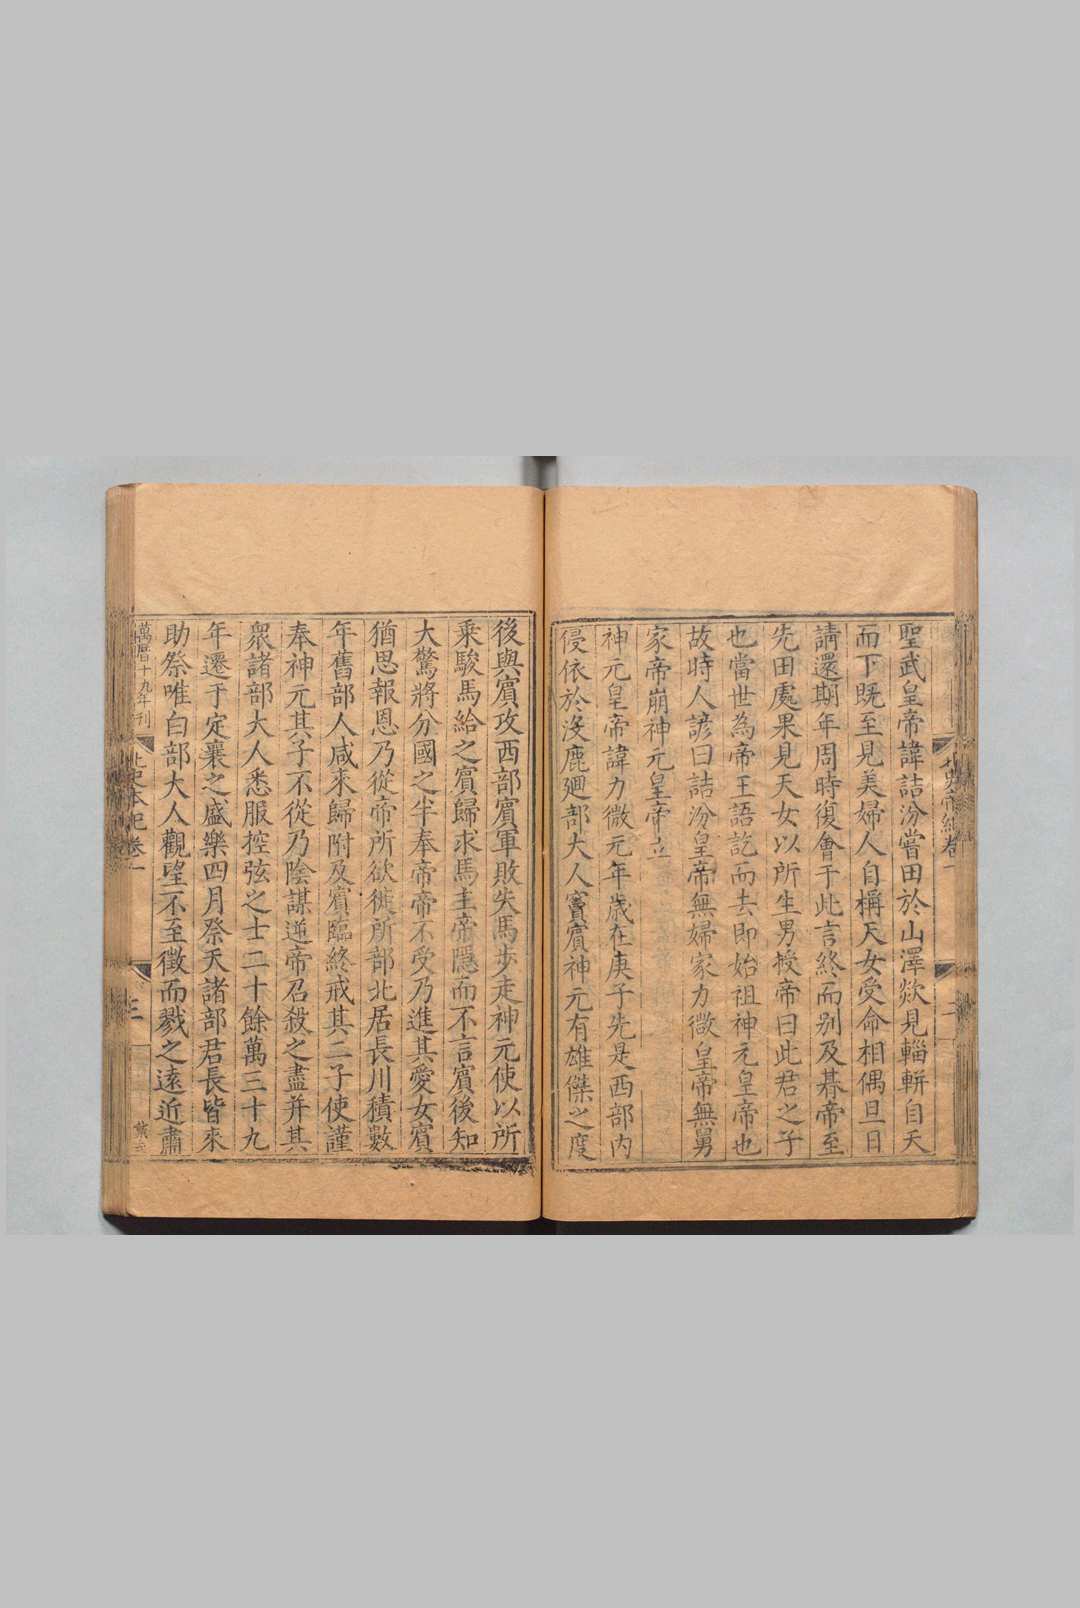 聖武皇帝諱詰汾嘗田於山澤欻見輜軿自天
而下既至見美婦人自稱天女受命相偶旦日
請還期年周時復會于此言終而别及朞帝至
先田處果見天女以所生男授帝曰此君之子
也當世為帝王語訖而去即始祖神元皇帝也
故時人諺曰詰汾皇帝無婦家力微皇帝無舅
家帝崩神元皇帝立
神元皇帝諱力微元年歲在庚子先是西部内
侵依於沒鹿迴部大人竇賓神元有雄傑之度
後與賓攻西部賓軍敗失馬步走神元使以所
乗駿馬給之賓歸求馬主帝隱而不言賓後知
大驚將分國之半奉帝帝不受乃進其愛女賓
猶思報恩乃從帝所欲徙所部北居長川積數
年舊部人咸來歸附及賓臨終戒其二子使謹
奉神元其子不從乃陰謀逆帝召殺之盡并其
衆諸部大人悉服控弦之士二十餘萬三十九
年遷于定襄之盛樂四月祭天諸部君長皆來
助祭唯白部大人觀望不至徵而戮之遠近肅
萬曆十九年刊
北史本紀卷一
三